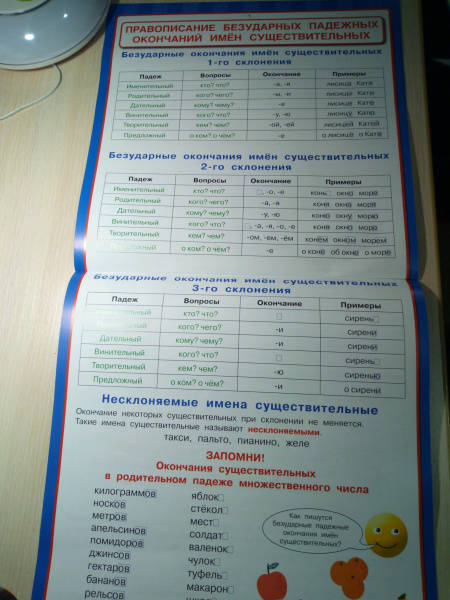 ПРАВОПИСАНИЕ БЕЗУДАРНЫХ ПАДЕЖНЫХ
ОКОНЧАНИЙ ИМЁН СУЩЕСТВИТЕЛЬНЫХ
Безударные окончания имён существительных
1-го склонения
Падеж Вопросы Окончание Примеры
Именительный кто? что? -а, -я лисица Катя
Родительный кого? чего? -ы, -и лисицы Кати
Дательный кому? чему? -е лисице Кате
Винительный кого? что? -у, -ю лисицу Катю
Творительный кем? чем? -ой, -ей лисицей Катей
Предложный о ком? о чём? -е о лисице о Кате
Безударные окончания имён существительных
2-го склонения
Падеж Вопросы Окончание Примеры
Именительный кто? что? □, -о, -е конь□ окно море
Родительный кого? чего? -а, -я коня окна моря
Дательный кому? чему? -у, -ю коню окну морю
Винительный кого? что? □, -а, -я, -о, -е коня окно море
Творительный кем? чем? -ом, -ем, -ём конём окном морем
о ком? о чём? -е о коне об окне о море
Безударные окончания имён существительных
3-го склонения
Падеж Вопросы Окончание Примеры
кто? что? □ сирень□
кого? чего? -и сирени
Дательный кому? чему? -и сирени
Винительный кого? что? □ сирень□
Творительный кем? чем? -ю сиренью
Предложный о ком? о чём? -и о сирени
Несклоняемые имена существительные
Окончание некоторых существительных при склонении не меняется.
Такие имена существительные называют несклоняемыми.
такси, пальто, пианино, желе
ЗАПОМНИ!
Окончания существительных
в родительном падеже множественного числа
килограммов яблок□
носков стёкол□
метров мест□
апельсинов солдат□
помидоров валенок□
джинсов чулок□
гектаров туфель□
бананов макарон□
рельсов
Как пишутся
безударные падежные
окончания имён
существительных?